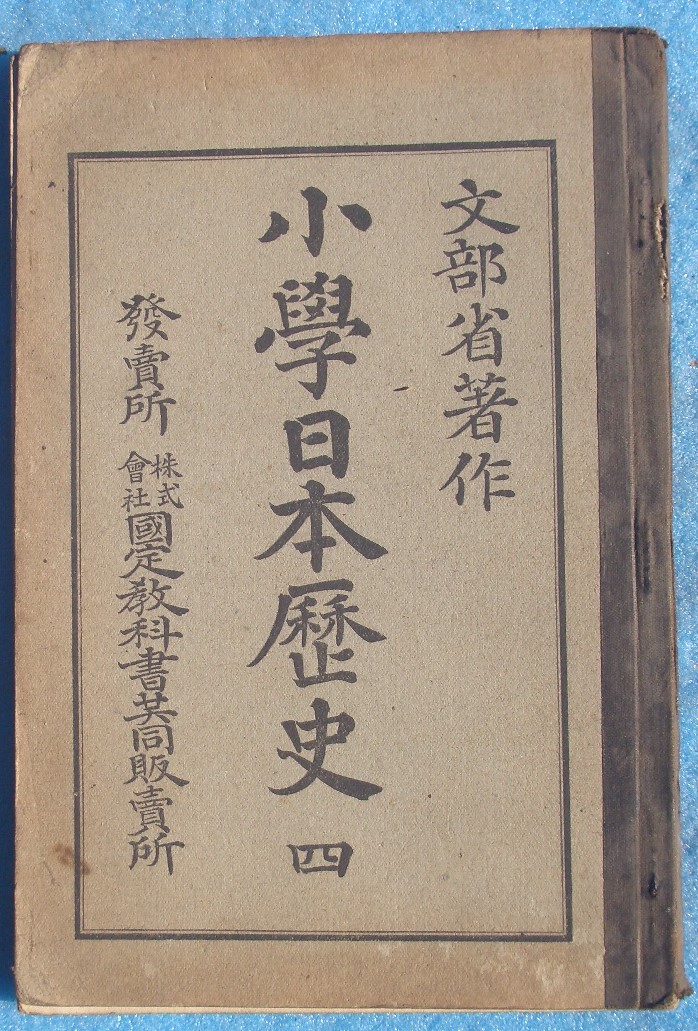 文部省著作
小學日本歷史 四
發賣所 株式會社國定教科書共同販賣所